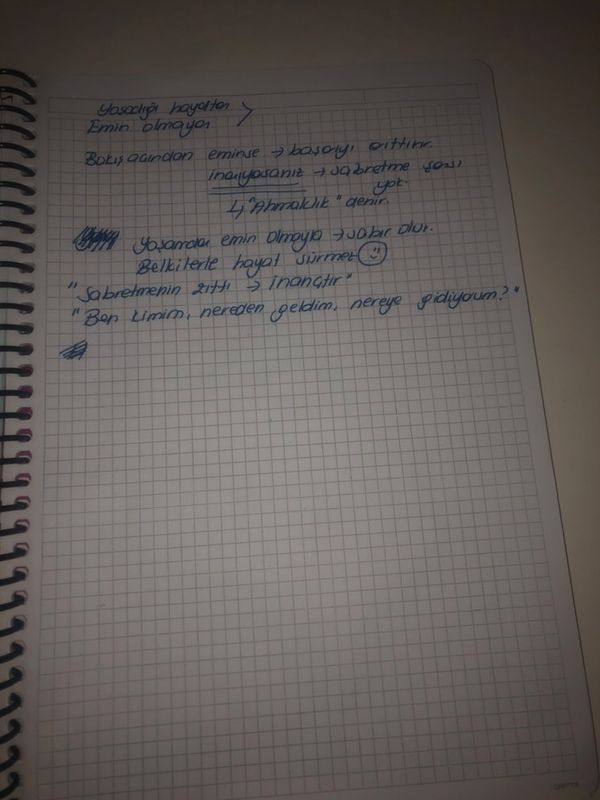 Yaşadığı hayattan >
Emin olmayan
Bakış açından eminse → başarıyı arttırır.
inanıyosanız → sabretme şansı
yok.
↳ "Ahmaklık" denir.
Yaşamdan emin olmayla → sabır olur.
Belkilerle hayat sürmez ☺
"Sabretmenin zıttı → inançtır"
"Ben kimim, nereden geldim, nereye gidiyorum?"